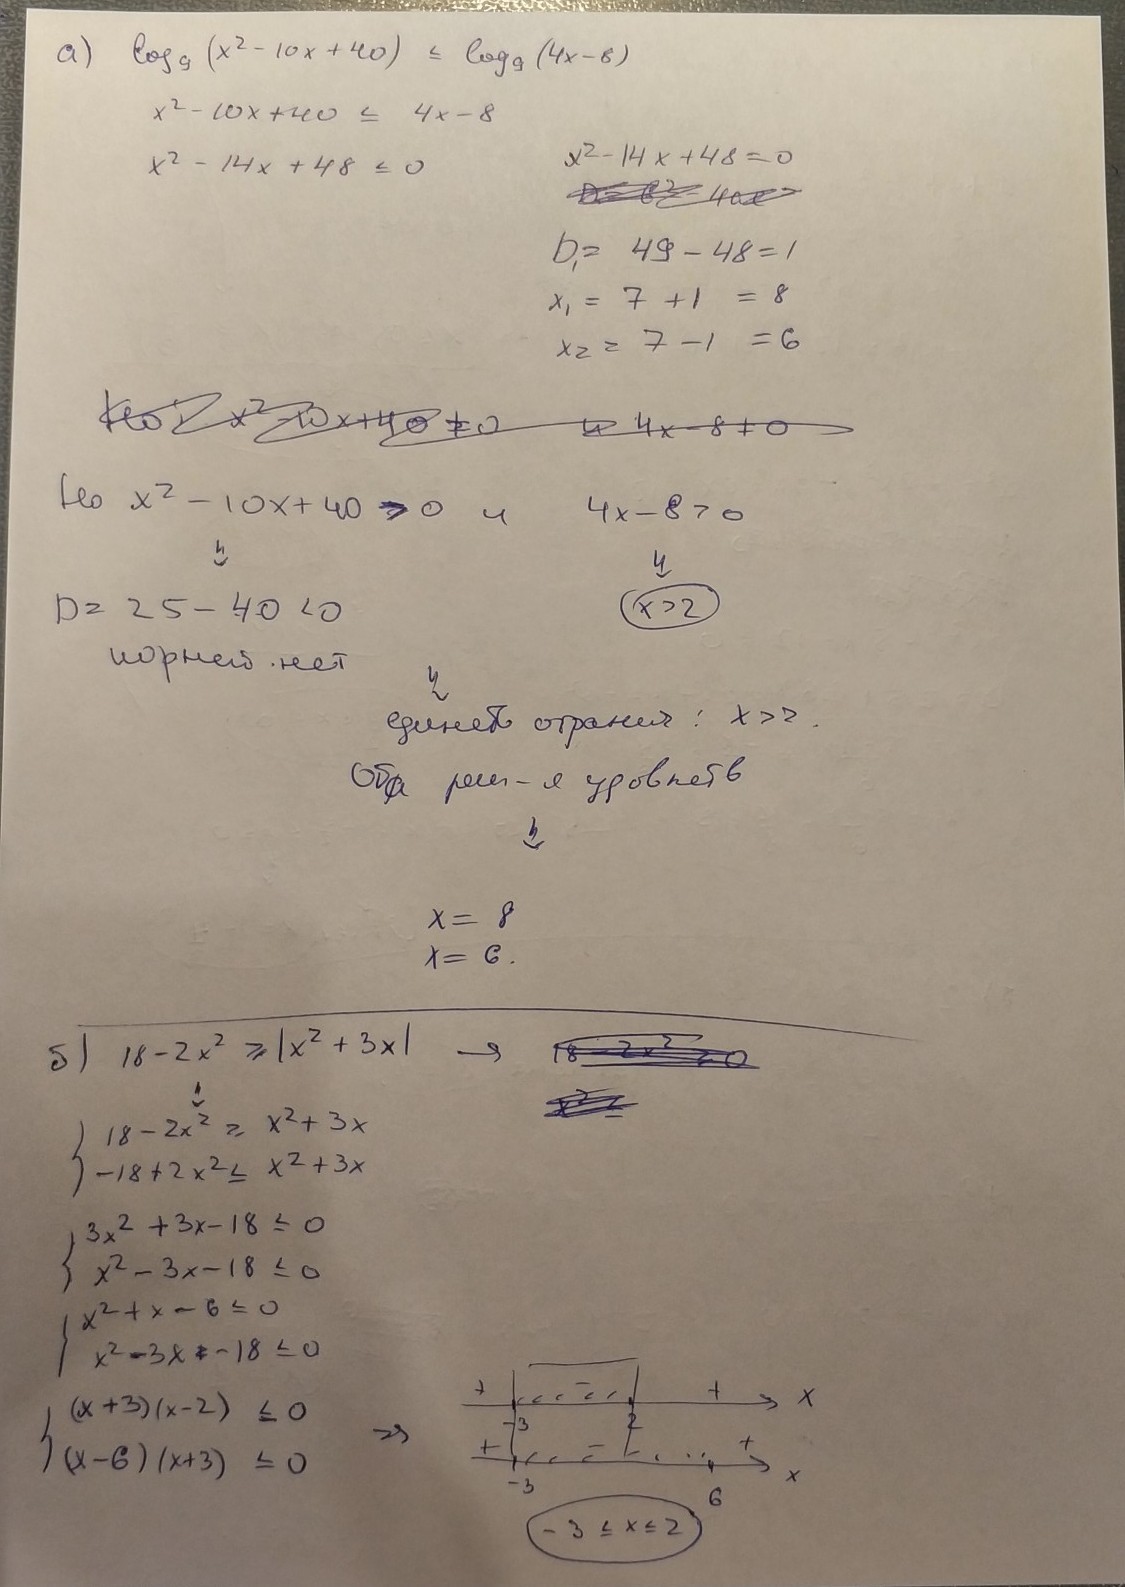 а) log₉ (x² - 10x + 40) ≤ log₉ (4x - 8)
x² - 10x + 40 ≤ 4x - 8
x² - 14x + 48 ≤ 0
x² - 14x + 48 = 0
D₁ = 49 - 48 = 1
x₁ = 7 + 1 = 8
x₂ = 7 - 1 = 6
Но x² - 10x + 40 ≠ 0 и 4x - 8 ≠ 0
Но x² - 10x + 40 > 0 и 4x - 8 > 0
⇓ ⇓
D = 25 - 40 < 0 x > 2
корней нет
⇓
x > 2.
Оба реш-я удовлетв
⇓
x = 8
x = 6.
б) 18 - 2x² ≥ |x² + 3x| → 18 - 2x² ≥ 0
⇓ x² ≤
{ 18 - 2x² ≥ x² + 3x
-18 + 2x² ≤ x² + 3x
{ 3x² + 3x - 18 ≤ 0
x² - 3x - 18 ≤ 0
{ x² + x - 6 ≤ 0
x² - 3x - 18 ≤ 0
{ (x + 3)(x - 2) ≤ 0
(x - 6)(x + 3) ≤ 0
⇒
+ - + x
-3 2
+ - + x
-3 6
-3 ≤ x ≤ 2